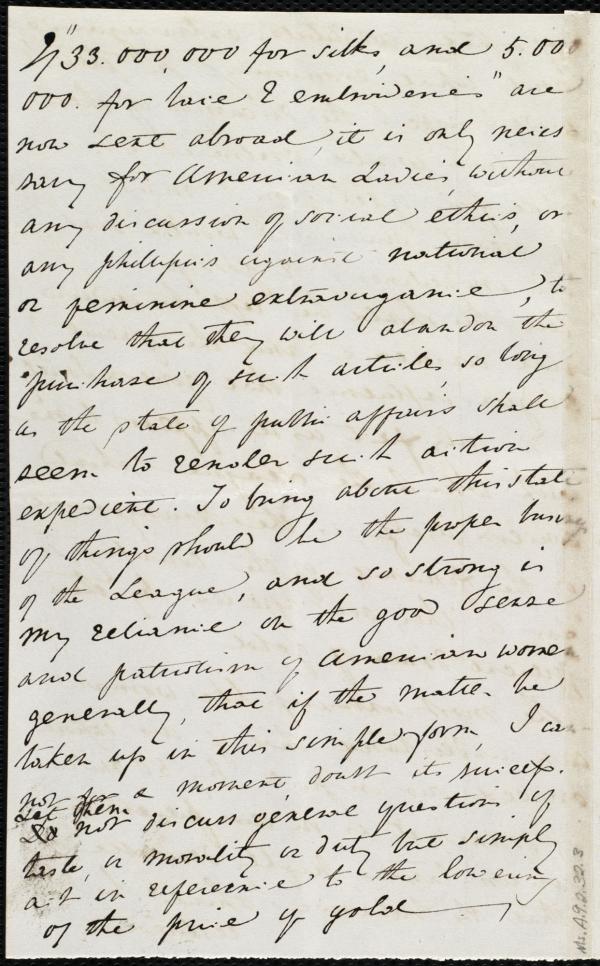 If "33.000,000 for silks, and 5.000
000. for lace & embroideries" are
now sent abroad, it is only neces
sary for American Ladies, without
any discussion of social ethics, or
any phillipics against national
or feminine extravagance, to
resolve that they will abandon the
purchase of such articles, so long
as the state of public affairs shall
seem to render such action
expedient. To bring about this state
of things should be the proper busi
of the League, and so strong is
my reliance on the good sense
and patriotism of American women
generally, that if the matter be
taken up in this simple form, I can
not for a moment doubt its success.
Let them
not discuss general questions of
taste, or morality or duty but simply
act in reference to the lowering
of the price of gold
Ms. A.9.2.32.3